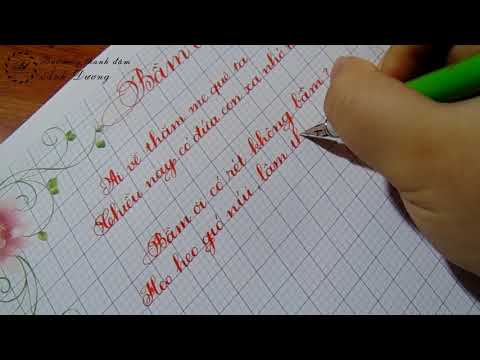 thanh đậm
Ánh Dương
Bầm
Ai về thăm mẹ quê ta
Chiều nay có đứa con xa nhớ
Bầm ơi có rét không bầm?
Heo heo gió núi, lâm